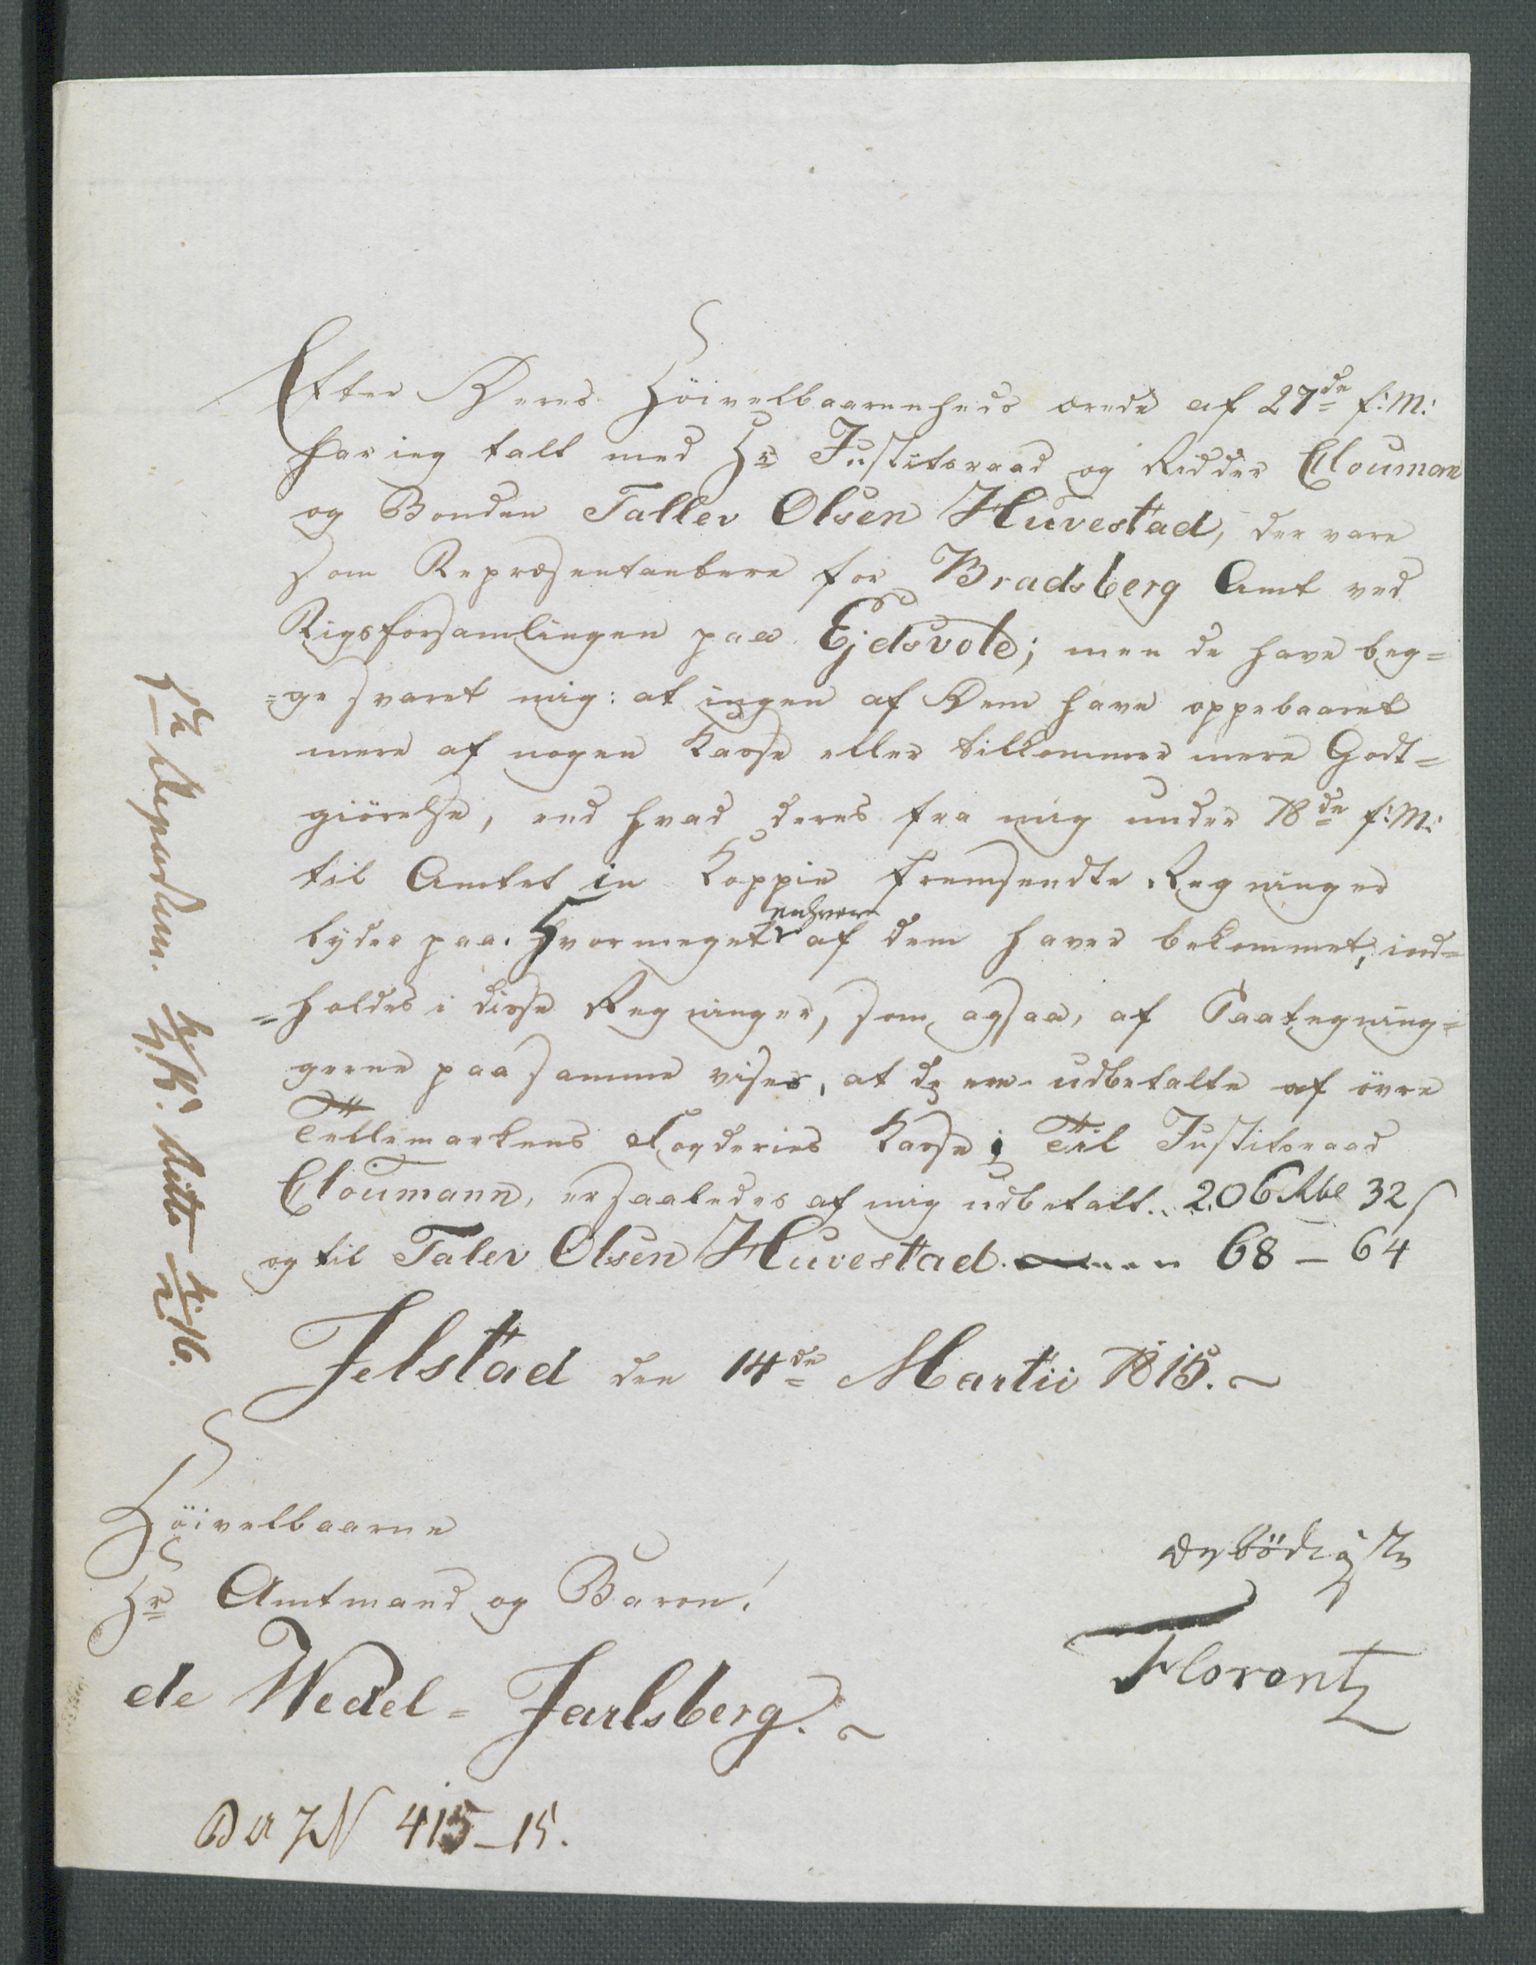 Efter Deres Höivelbaarenheds ærede af 27de f: M:
har ieg talt med Hr Justitsraad og Ridder Cloumann
og Bonden Tallev Olsen Huvestad, der vare
som Repræsentantere for Bradsberg Amt ved
Rigsforsamlingen paa Ejdsvold; men de have beg=
=ge svaret mig: at ingen af Dem have oppebaaret
mere af nogen Kasse eller tilkommer mere Godt=
giörelse, end hvad deres fra mig under 18de f: M:
til Amtet in Koppie fremsendte Regninger
lyder paa. Hvormeget enhver af dem haver bekommet, ind=
=holdes i disse Regninger, som ogsaa, af Paategning=
gerne paa samme vises, at de ere udbetalte af övre
Tellemarkens Fogderies Kasse; Til Justitsraad
Cloumann, er saaledes af mig udbetalt .. 206 Rbd 32 s
og til Talev Olsen Huvestad 68 — 64
Jelstad den 14de Martii 1815. ~
Höivelbaarne
Hr Amtmand og Baron!
de Wedel = Jarlsberg. ~
ærbödigst
Florentz
415 – 15.